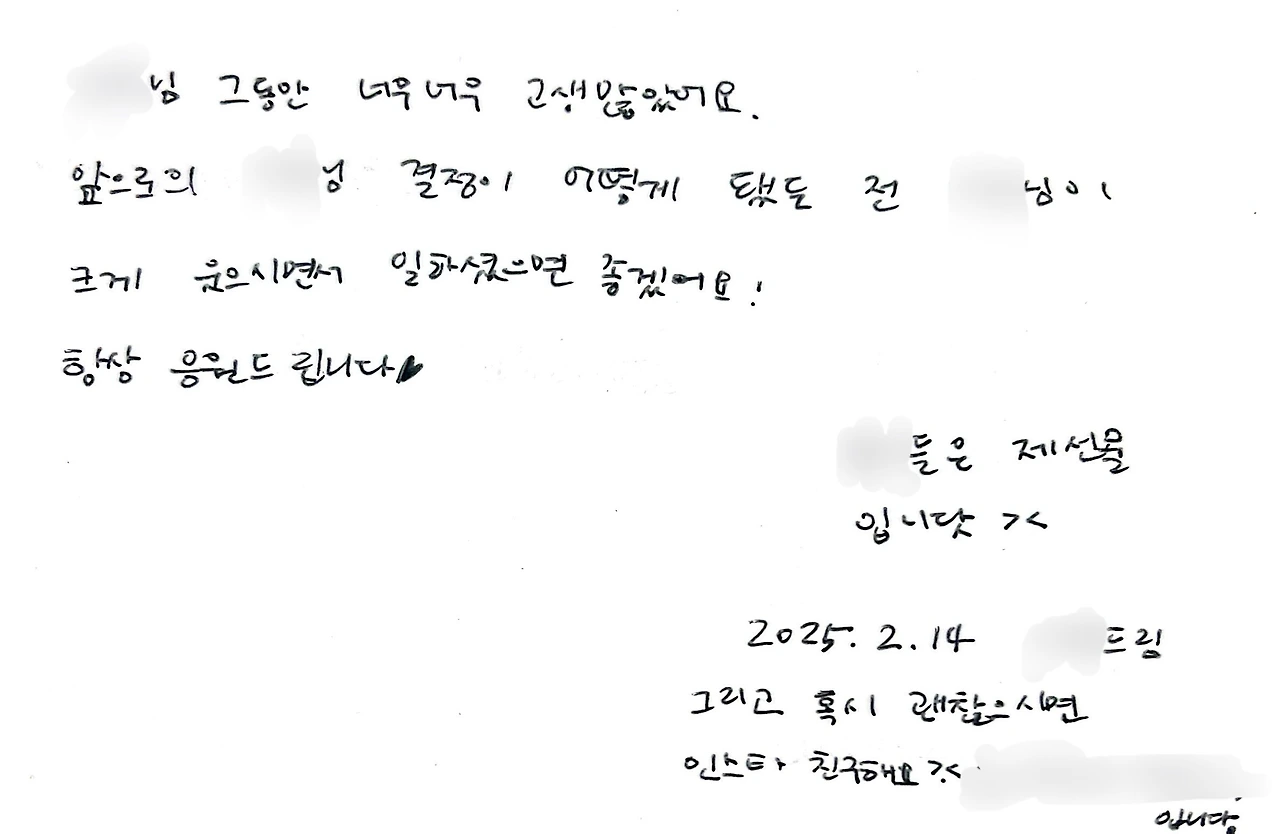 님 그동안 너무너무 고생많았어요.
앞으로의 님 결정이 어떻게 됐든 전 님이
크게 웃으시면서 일하셨으면 좋겠어요!
항상 응원드립니다♥
들은 제선물
입니닷 ><
2025. 2. 14 드림
그리고 혹시 괜찮으시면
인스타 친구해요 ><
입니당